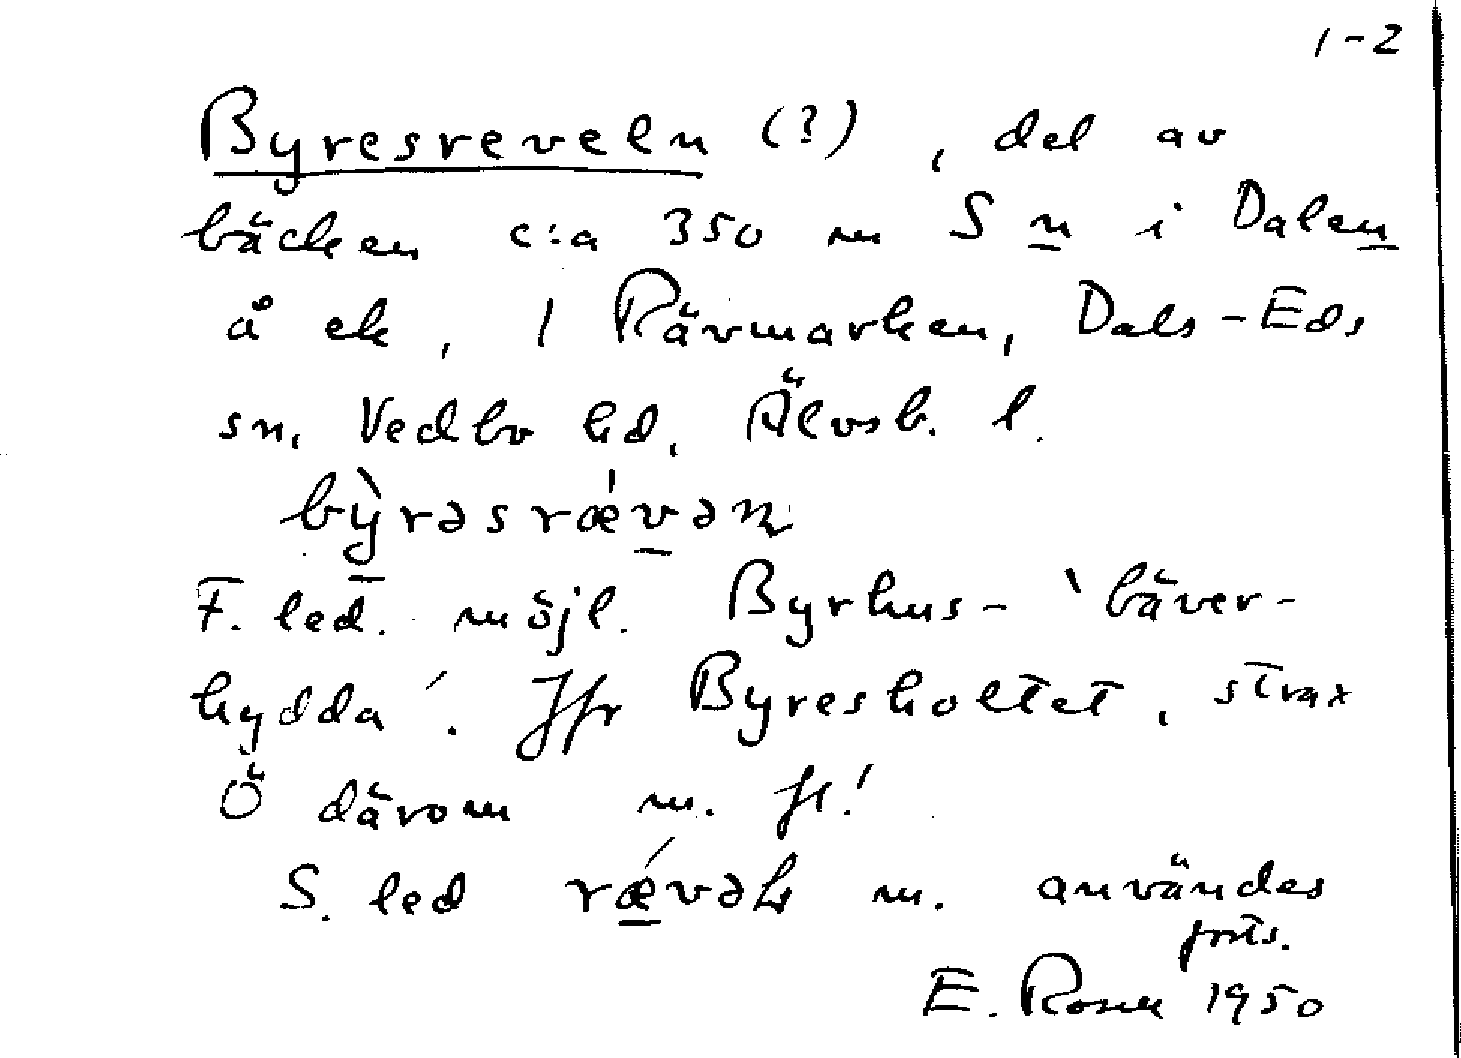 1-2
Byresreveln (?), del av
bäcken c:a 350 m S n i Dalen
å ek, 1 Rävmarken, Dals-Eds
sn, Vedbo hd, Älvsb. l.
bỳrəsrǽvən
F. led. möjl. Byrhus- `bäver-
hydda´. Jfr Byresholtet, strax
Ö därom m. fl!
S. led rǽvəl m. användes
forts.
E. Rosell 1950